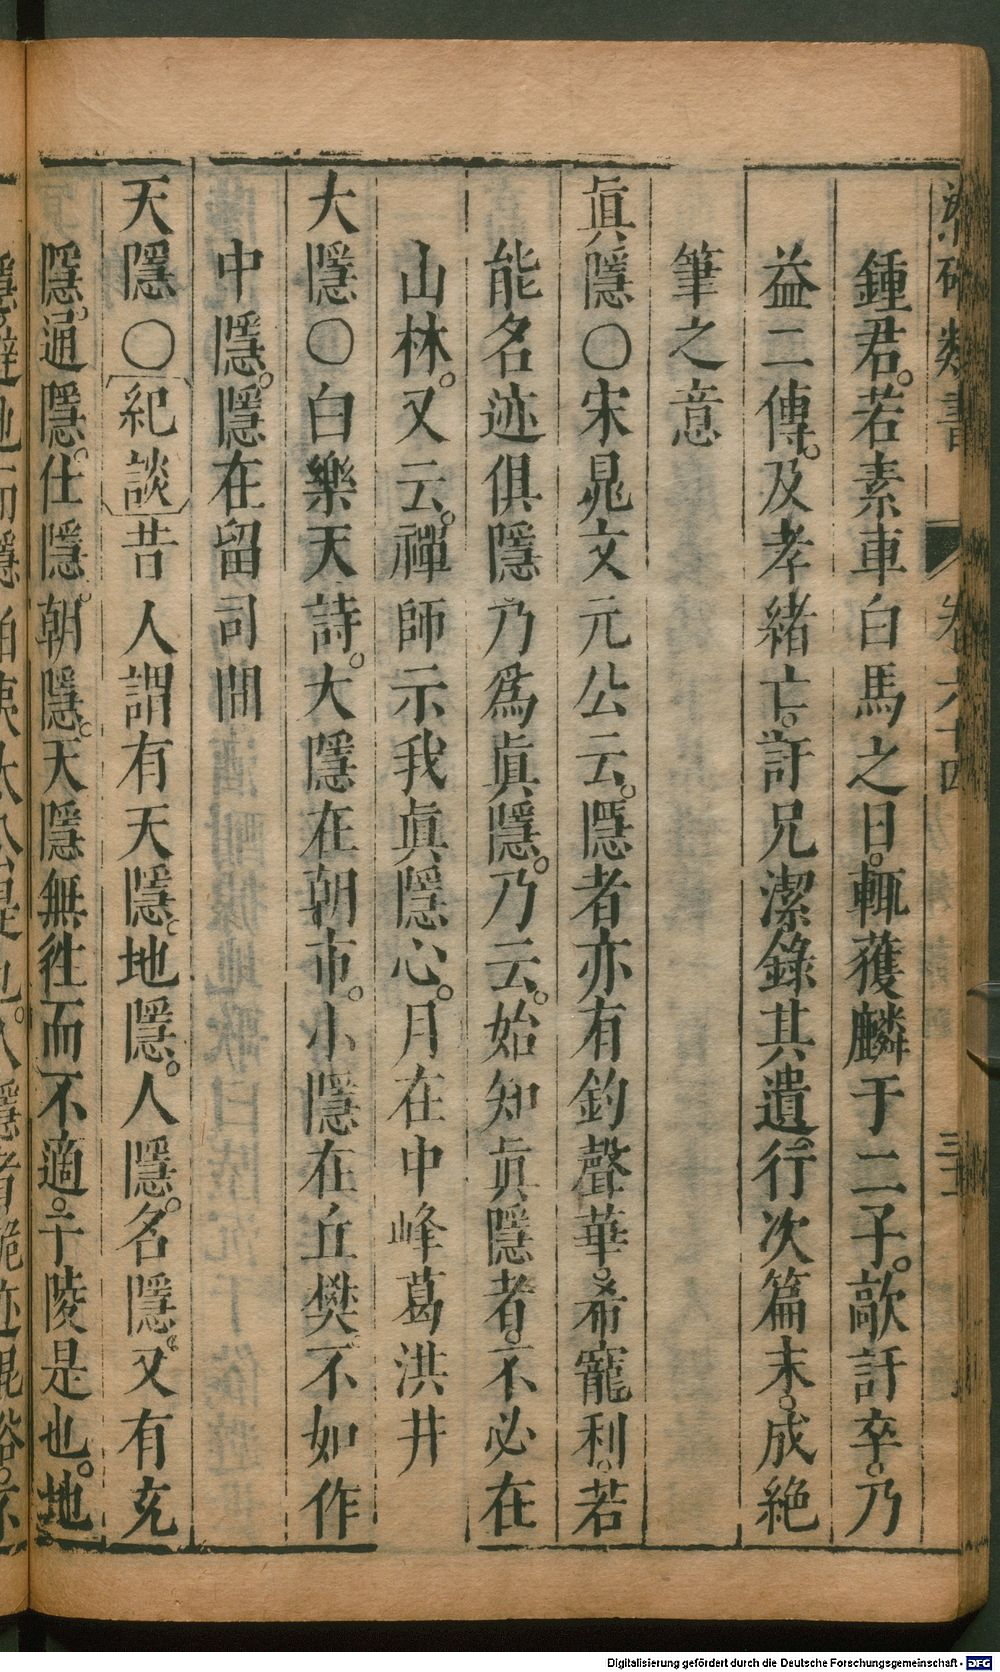 鍾君。若素車白馬之日。輒獲麟于二子。歊訏卒。乃
益二傳。及孝緒亡。訏兄潔錄其遺。行次篇末。成絶
筆之意
眞隱〇宋晁文元公云。隱者亦有釣聲華。希寵利。若
能名迹俱隱乃爲眞隱。乃云。始知眞隱者。不必在
山林。又云。禪師示我眞隱心。月在中峰葛洪井
大隱〇白樂天詩。大隱在朝市。小隱在丘樊不如作
中隱。隱在留司間
天隱〇紀談昔人謂有天隱。地隱。人隱。名隱。又有充
隱。通隱。仕隱。朝隱。天隱無徃而不適。子陵是也。地
隱避地而隱伯夷太公是也。人隱者詭迹混俗。不
卷六十四
Digitalisierung gefördert durch die Deutsche Forschungsgemeinschaft - DFG